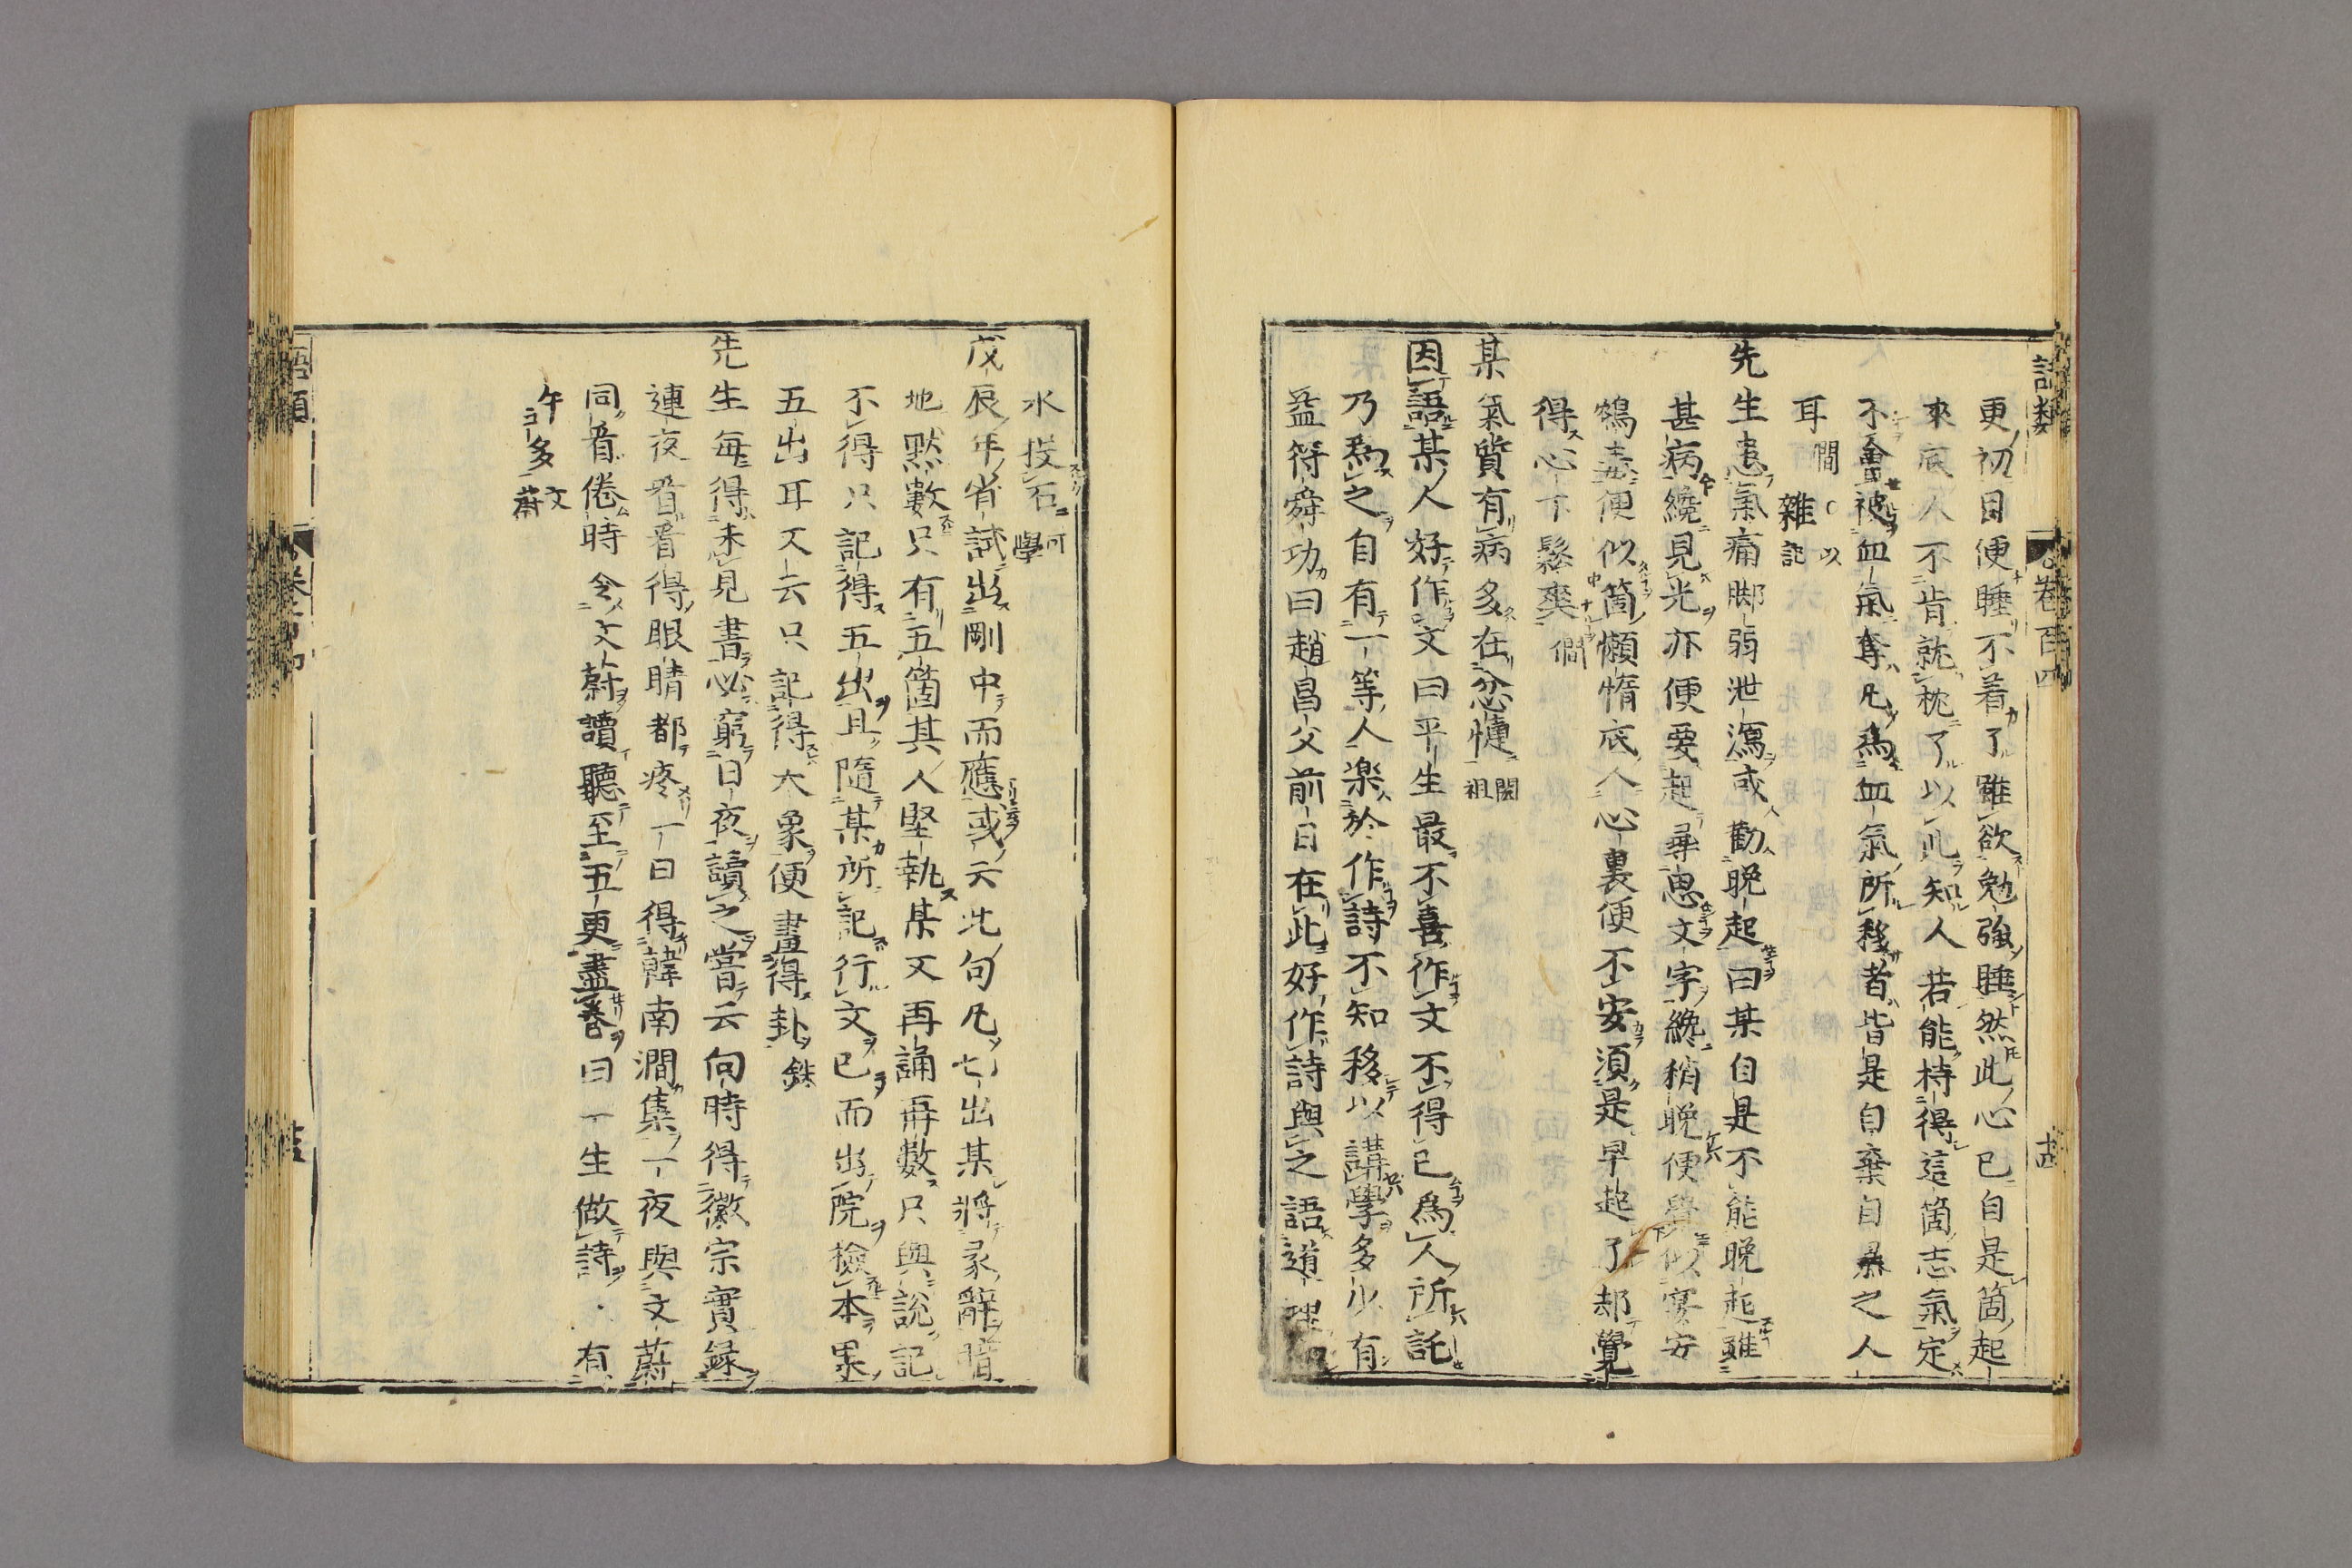 語類 卷百四 十四
更初目便睡不着了雖欲勉強睡然此心已自是箇起
來底人不肯就枕了以此知人若能持得這箇志氣定
不會被血氣奪凡爲血氣所移者皆是自棄自暴之人
耳 僩○以雜記
先生患氣痛脚弱泄瀉或勸晚起曰某自是不能晚起雖
甚病纔見光亦便要起尋思文字纔稍晚便覺似宴安
鴆毒便似箇懶惰底人心裏便不安須是早起了却覺
得心下鬆爽 僩
某氣質有病多在忿懥 閎祖
因語某人好作文曰平生最不喜作文不得已爲人所託
乃爲之自有一等人楽於作詩不知移以講學多少有
益符舜功曰趙昌父前日在此好作詩與之語道理如
水投石 可學
戊辰年省試出剛中而應或云此句凡七出某將彖辭暗
地默數只有五箇其人堅執某又再誦再數只與說記
不得只記得五出且隨某所記行文已而出院檢本果
五出耳又云只記得大象便畫得卦 銖
先生每得未見書必窮日夜讀之嘗云向時得徽宗實録
連夜看看得眼睛都疼一日得韓南澗集一夜與文蔚
同看倦時令文蔚讀聽至五更盡卷曰一生做詩・有
許多 文蔚
語類